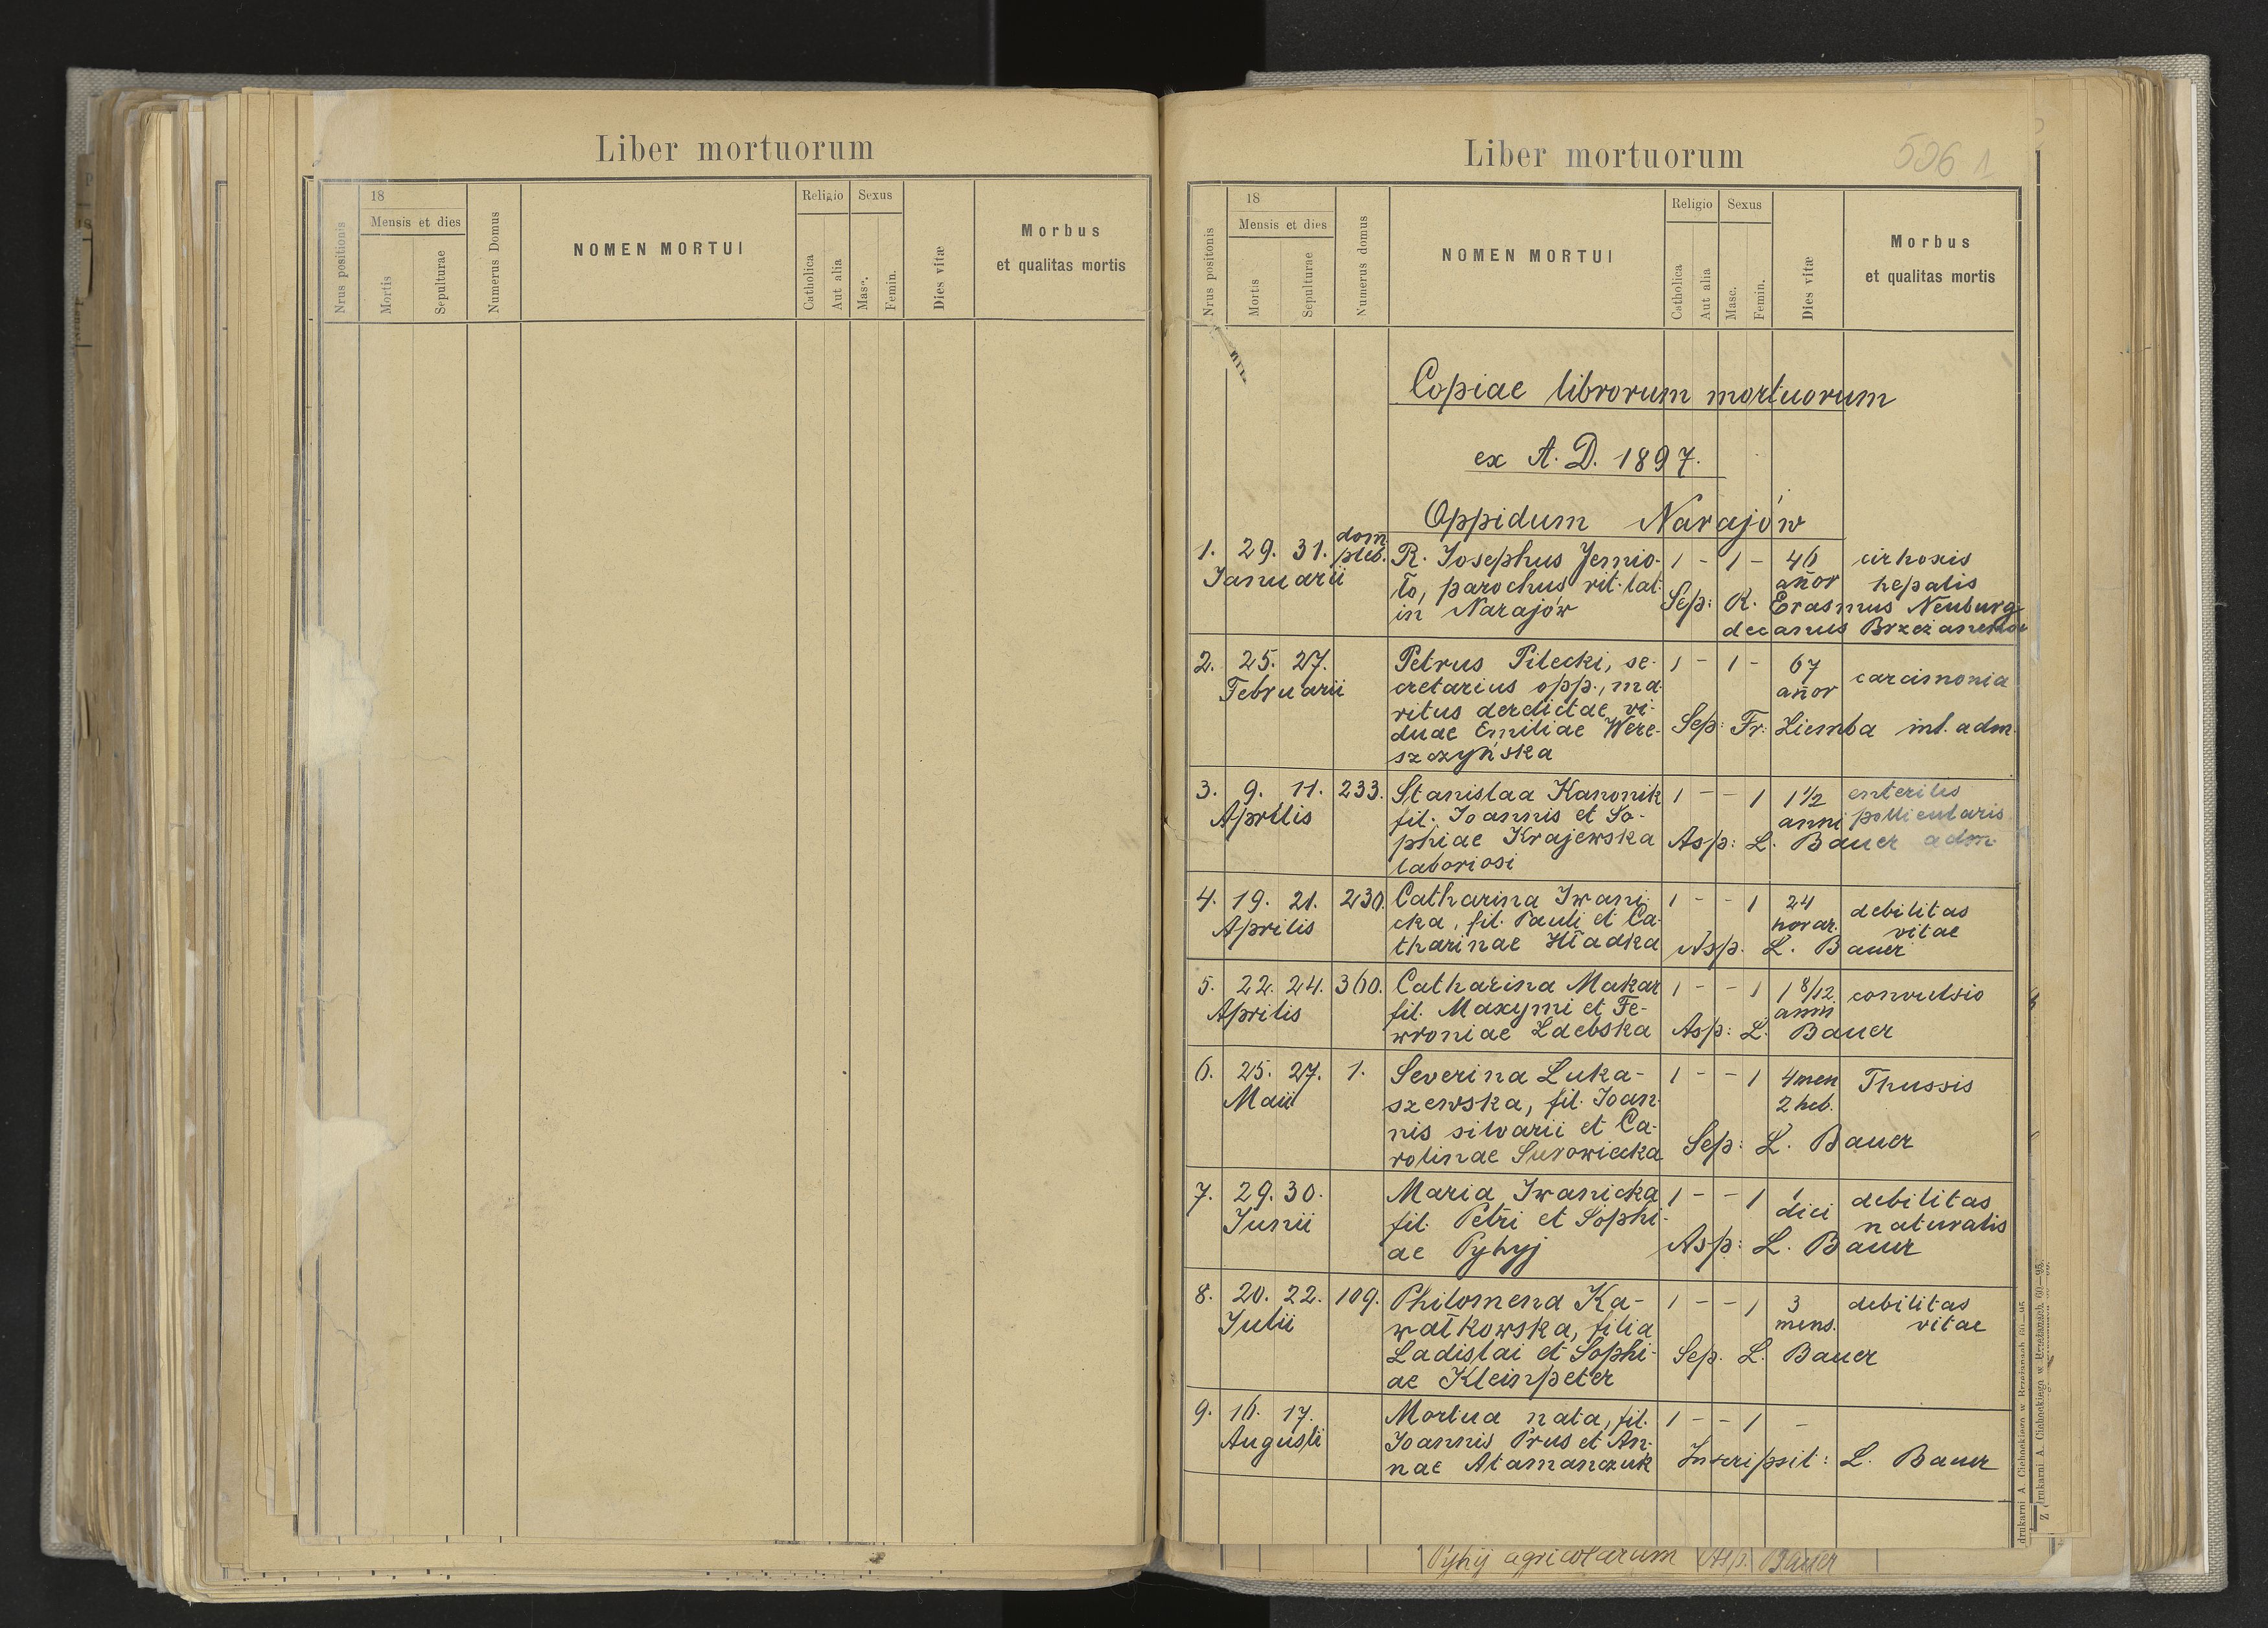 Liber mortuorum
Nrus positionis
18
Mensis et dies
Mortis
Sepulturae
Numerus Domus
NOMEN MORTUI
Religio
Catholica
Aut alia
Sexus
Masc.
Femin.
Dies vitæ
Morbus
et qualitas mortis
Liber mortuorum
506 1
Nrus positonis
18
Mensis et dies
Mortis
Sepulturae
Numerus domus
NOMEN MORTUI
Religio
Catholica
Aut alia
Sexus
Masc.
Femin.
Dies vitæ
Morbus
et qualitas mortis
Copiae librorum mortuorum
ex A. D. 1897.
Oppidum Narajów
dom.
1. 29. 31. pleb. R. Josephus Jemio- 1 - 1 - 46 cirhosis
Januarii ło, parochus rit. lat. añor hepatis
in Narajów Sep: R. Erasmus Neuburg
decanus
2. 25. 27. Petrus Pilecki, se- 1 - 1 - 67
Februarii cretarius opp., ma- añor carcimonia
ritus derelictae vi-
duae Emiliae Were- Sep: Fr. Ziemba int. adm.
szczyńska
3. 9. 11. 233. Stanislaa Kanonik 1 - - 1 1 1/2 enteritis
Aprilis fil. Joannis et So- anni pollicularis
phiae Krajewska Asp: L. Bauer adm.
laboriosi
4. 19. 21. 230. Catharina Iwani- 1 - - 1 24 debilitas
Aprilis cka, fil. Pauli et Ca- horar. vitae
tharinae Hładka Asp. L. Bauer
5. 22. 24. 360. Catharina Makar 1 - - 1 1 8/12 convulsio
Aprilis fil. Maxymi et Fe- anni
wroniae Ldebska Asp: L. Bauer
6. 25. 27. 1. Severina Luka- 1 - - 1 4 men Thussis
Maii szewska, fil. Joan- 2 heb.
nis silvarii et Ca-
rolinae Surowiecka Sep: L. Bauer
7. 29. 30. Maria Iwanicka 1 - - 1 1 debilitas
Junii fil. Petri et Sophi- diei naturalis
ae Pyhyj Asp: L. Bauer
8. 20. 22. 109. Philomena Ka- 1 - - 1 3 debilitas
Julii wałkowska, filia mens. vitae
Ladislai et Sophi- Sep. L. Bauer
ae Kleinpeter
9. 16. 17. Mortua nata, fil. 1 - - 1 -
Augusti Joannis Prus et An-
nae Atamanczuk Inscripsit: L. Bauer
drukarni A. Cichockiego w Brzeżanach 60—95
Z drukarni A. Cichockiego w Brzeżanach 60—95.
Pyhij agricolarum Asp. Bauer